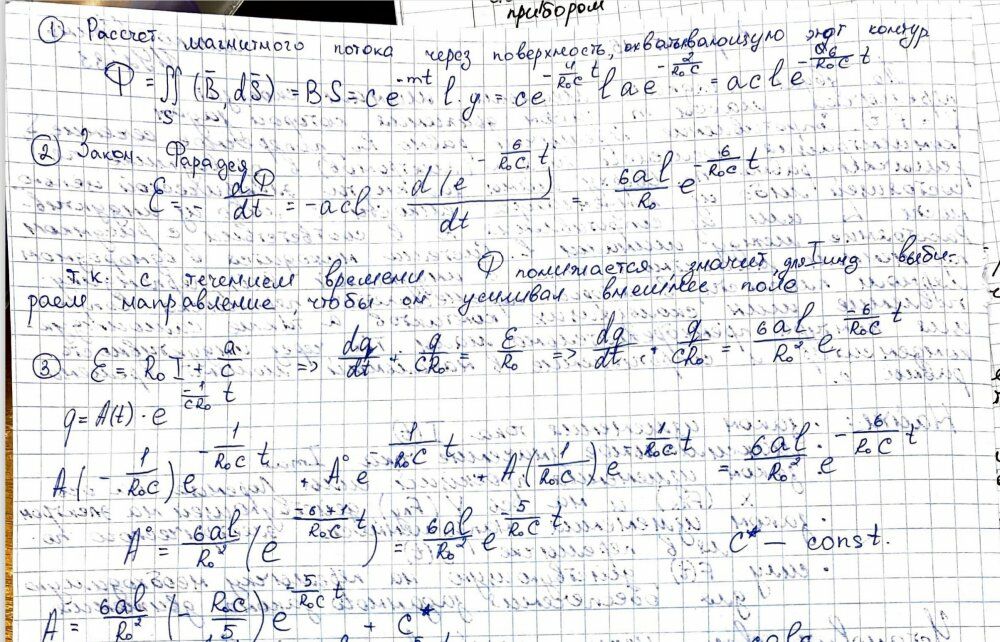 прибором
① Рассчет магнитного потока через поверхность, охватывающую этот контур
Φ = ∬_S (B̄, dS̄) = B·S = c e^{-mt} l·y = c e^{-\frac{4}{R₀C}t} l a e^{-\frac{2}{R₀C}} = a c l e^{-\frac{6}{R₀C}t}
② Закон Фарадея
Ɛ = - \frac{dΦ}{dt} = -acl · \frac{d(e^{-\frac{6}{R₀C}t})}{dt} = \frac{6al}{R₀} e^{-\frac{6}{R₀C}t}
т.к. с течением времени Φ понижается, значит для I инд выби-
раем направление, чтобы он усиливал внешнее поле
③ Ɛ = R₀ I + \frac{q}{C} => \frac{dq}{dt} + \frac{q}{CR₀} = \frac{Ɛ}{R} => \frac{dq}{dt} + \frac{q}{CR₀} = \frac{6al}{R₀²} e^{\frac{-6}{R₀C}t}
q = A(t) · e^{\frac{-1}{CR₀}t}
A(-\frac{1}{R₀C}) e^{-\frac{1}{R₀C}t} + A° e^{\frac{1}{R₀C}t} + A(\frac{1}{R₀C}) e^{\frac{1}{R₀C}t} = \frac{6al}{R₀²} · e^{-\frac{6}{R₀C}t}
A° = \frac{6al}{R₀²} (e^{\frac{-6+1}{R₀C}t}) = \frac{6al}{R₀²} e^{-\frac{5}{R₀C}t} C* — const.
A = \frac{6al}{R₀²} (-\frac{R₀C}{5}) e^{-\frac{5}{R₀C}t} + C*